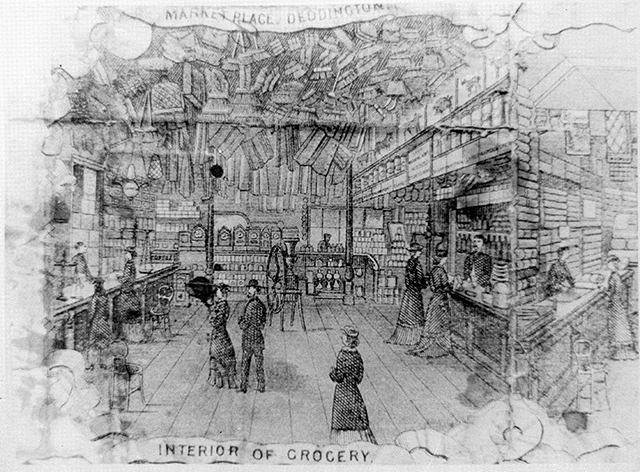 MARKET PLACE, DEDDINGTON.
INTERIOR OF GROCERY.